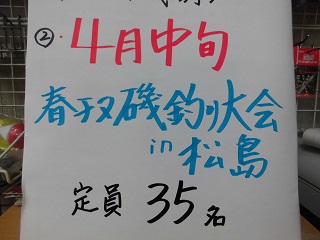 ②・4月中旬
春チヌ磯釣り大会
in 松島
定員 35名